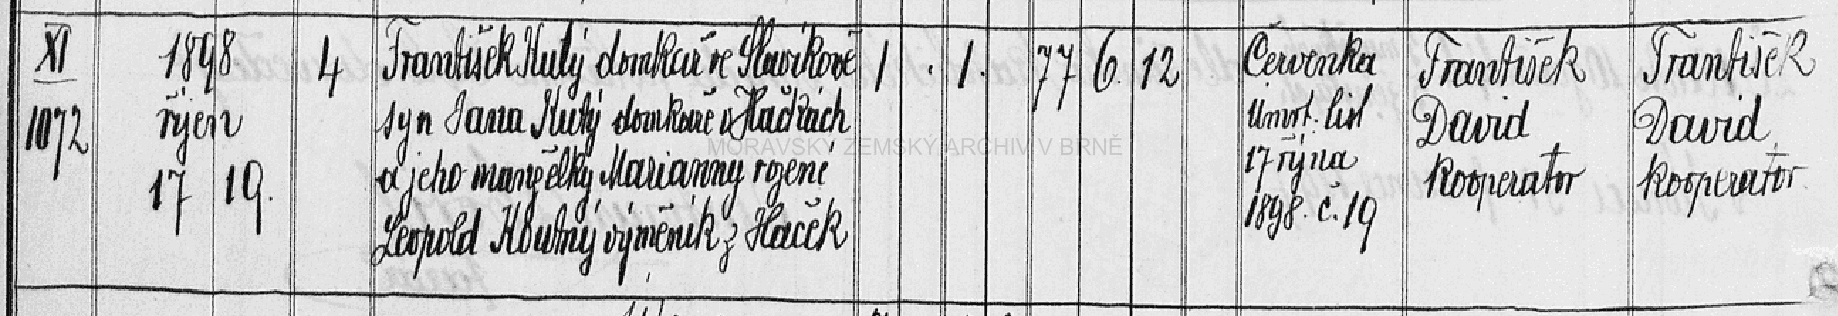 XI
1072
1898
říjen
17 19.
4
František Kutý domkař ve Slavíkově
syn Jana Kutý domkaře v Hačkách
a jeho manželky Marianny rozené
Leopold Koutný výměnik z Haček
1 . 1. 77 6. 12
Červenka
Úmrt. list
17 října
1898. č. 19
František
David
kooperator
František
David
kooperator
MORAVSKÝ ZEMSKÝ ARCHIV V BRNĚ